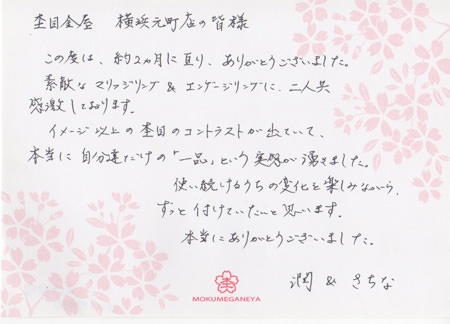 杢目金屋 横浜元町店の皆様
この度は、約2ヵ月に亘り、ありがとうございました。
素敵なマリッジリング & エンゲージリングに、二人共
感激しております。
イメージ以上の杢目のコントラストが出ていて、
本当に自分達だけの「一品」という実感が湧きました。
使い続けるうちの変化を楽しみながら、
ずっと付けていたいと思います。
本当にありがとうございました。
潤 & さちな
MOKUMEGANEYA